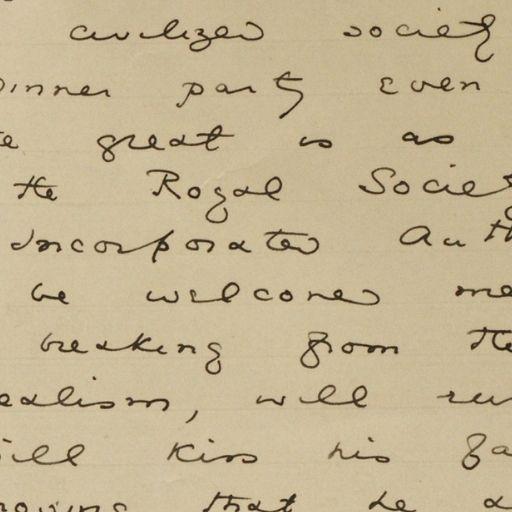 civilized society
dinner party even
great is as
the Royal Societ
Incorporated Auth
be welcomed me
breaking from the
ealism, will ru
ill kiss his fa
roving that he a